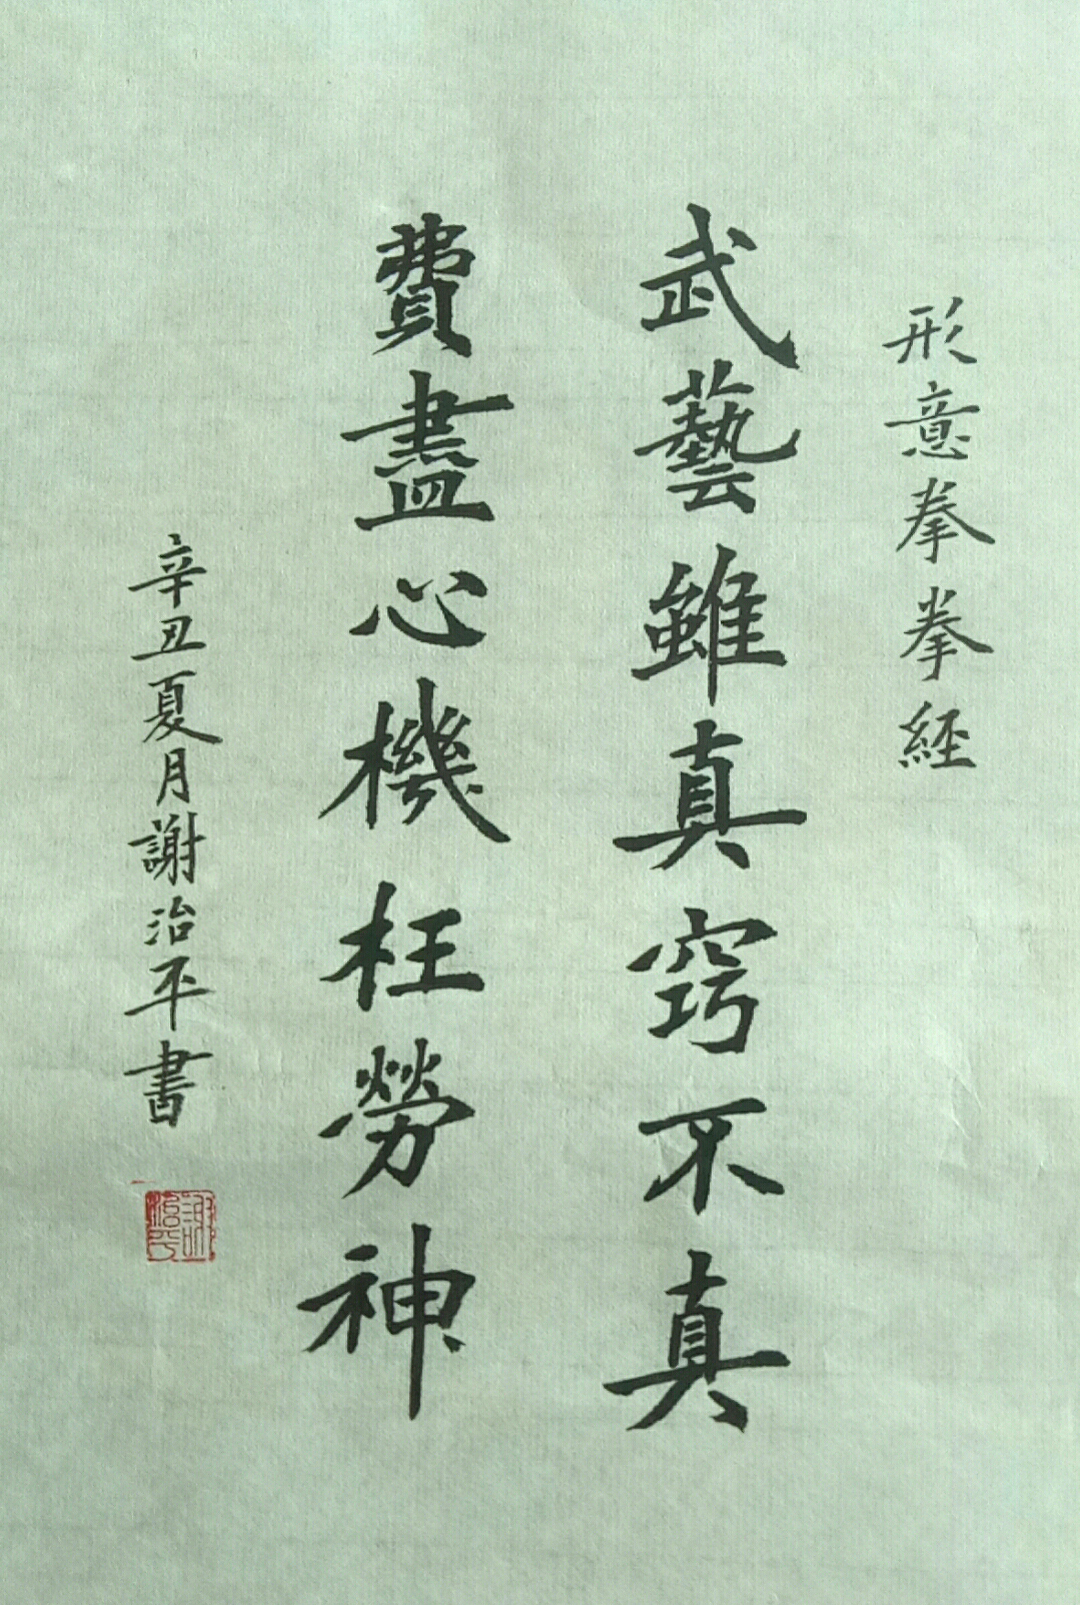 形意拳拳經
武藝雖真窍不真
費盡心機枉勞神
辛丑夏月謝治平書
謝治平